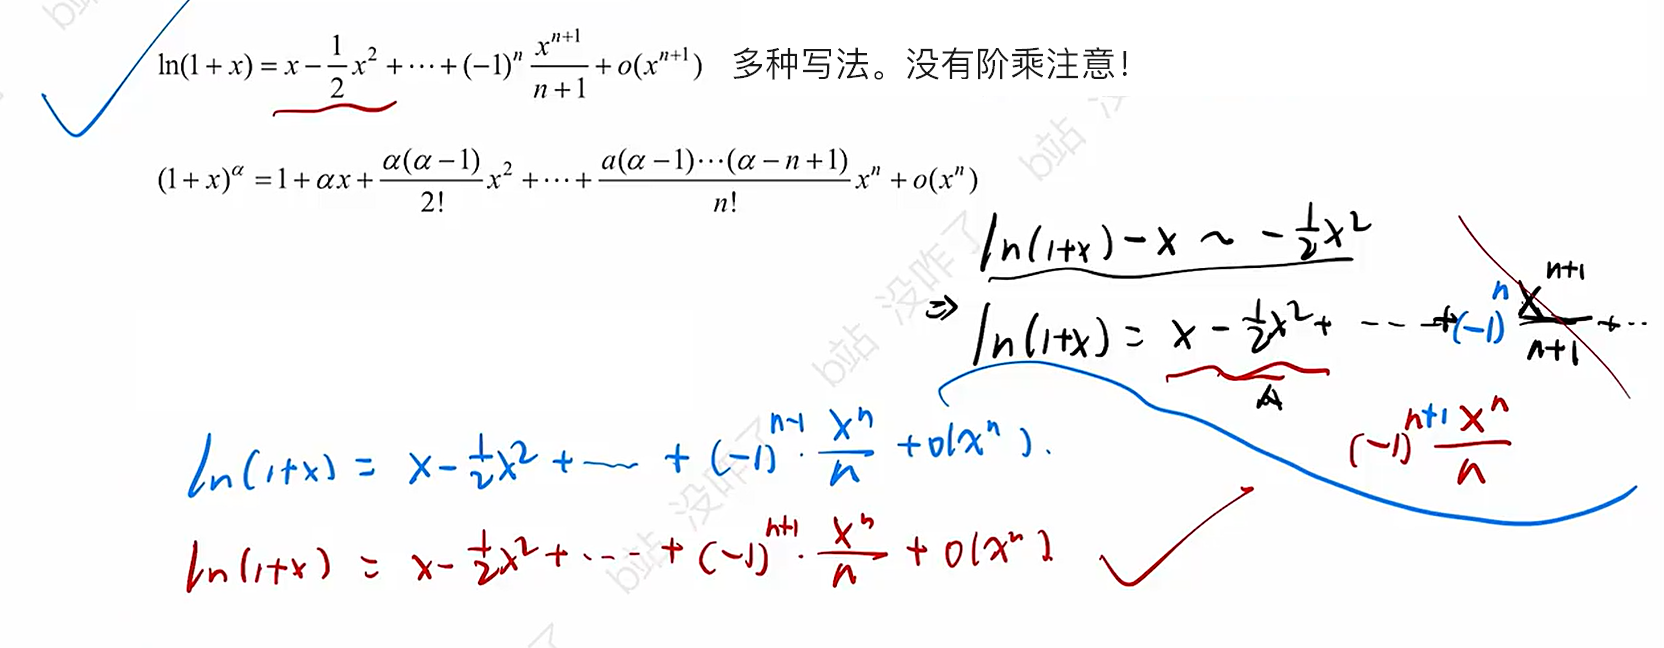 ln(1+x) = x - \frac{1}{2}x^2 + ⋯ + (-1)^n \frac{x^{n+1}}{n+1} + o(x^{n+1}) 多种写法。没有阶乘注意！
(1+x)^α = 1 + αx + \frac{α(α-1)}{2!}x^2 + ⋯ + \frac{a(α-1)⋯(α-n+1)}{n!}x^n + o(x^n)
ln(1+x) - x ~ -\frac{1}{2}x^2
⇒ ln(1+x) = x - \frac{1}{2}x^2 + ⋯ + (-1)^n \frac{x^{n+1}}{n+1} + ⋯
(-1)^{n+1} \frac{x^n}{n}
ln(1+x) = x - \frac{1}{2}x^2 + ⋯ + (-1)^{n-1} · \frac{x^n}{n} + o(x^n).
ln(1+x) = x - \frac{1}{2}x^2 + ⋯ + (-1)^{n+1} · \frac{x^n}{n} + o(x^n)
b站 没咋了
b站 没咋了